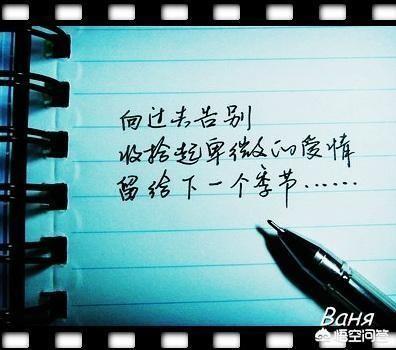 向过去告别
收拾起卑微的爱情
留给下一个季节……
Ваня
悟空问答